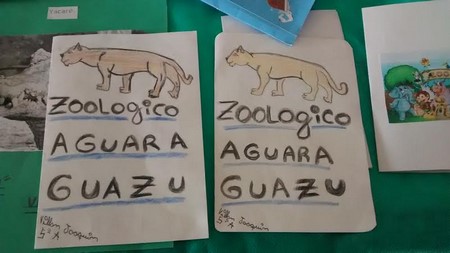 ZOOLOGICO
AGUARA
GUAZU
Joaquin
5º A
ZOOLOGICO
AGUARA
GUAZU
Joaquin
5º A
ZOO